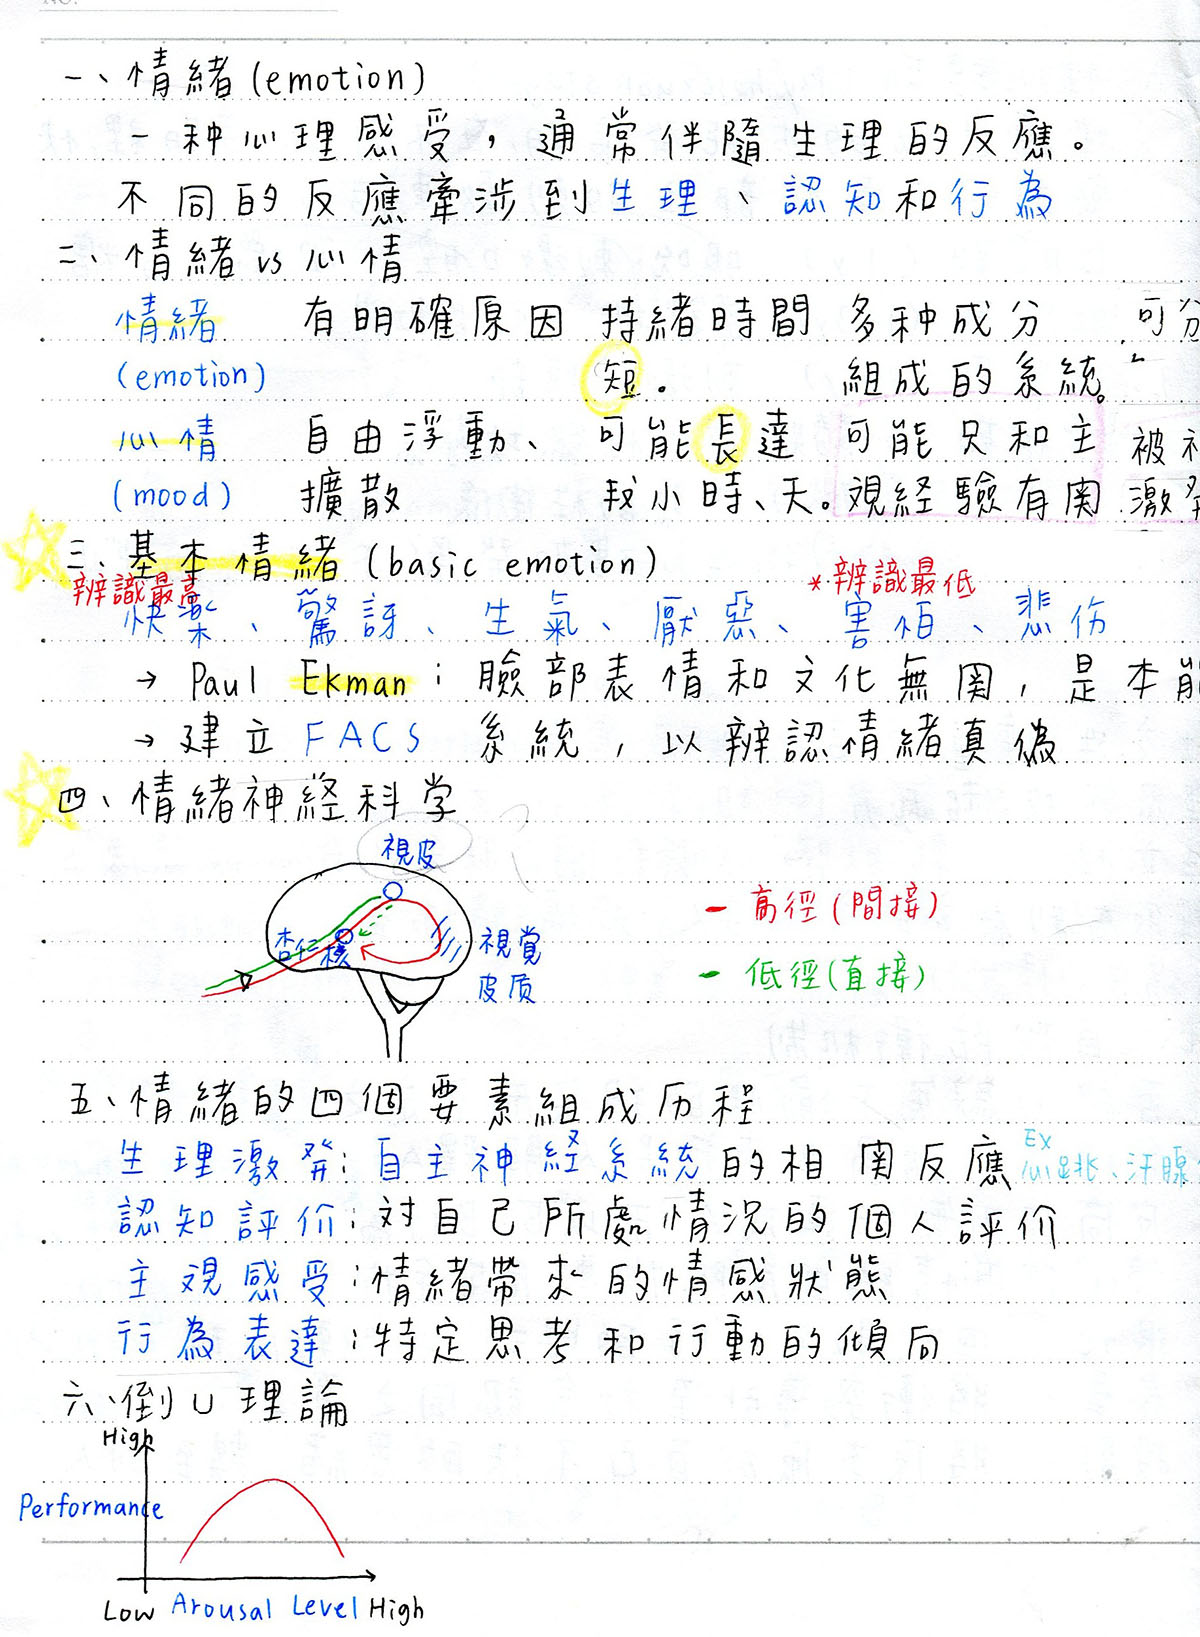 一、情緒(emotion)
一种心理感受，通常伴隨生理的反應。
不同的反應牽涉到生理、認知和行為
二、情緒 vs 心情
情緒 有明確原因 持緒時間 多种成分 可分
(emotion) 短。 組成的系統。
心情 自由浮動、 可能長達 可能只和主 被
(mood) 擴散 找小時、天。 观経驗有関 激發
三、基本情緒(basic emotion)
辨識最高 *辨識最低
快楽、驚訝、生氣、厭惡、害怕、悲伤
→ Paul Ekman：臉部表情和文化無関，是本能
→ 建立 FACS 系統，以辨認情緒真偽
四、情緒神経科学
視皮
杏仁核 視覚
皮质
- 高徑(間接)
- 低徑(直接)
五、情緒的四個要素組成历程
生理激発：自主神経系統的相関反應 EX 心跳、汗腺
認知評价：对自己所處情況的個人評价
主观感受：情緒帶來的情感狀態
行為表達：特定思考和行動的傾向
六、倒U理論
High
Performance
Low Arousal Level High